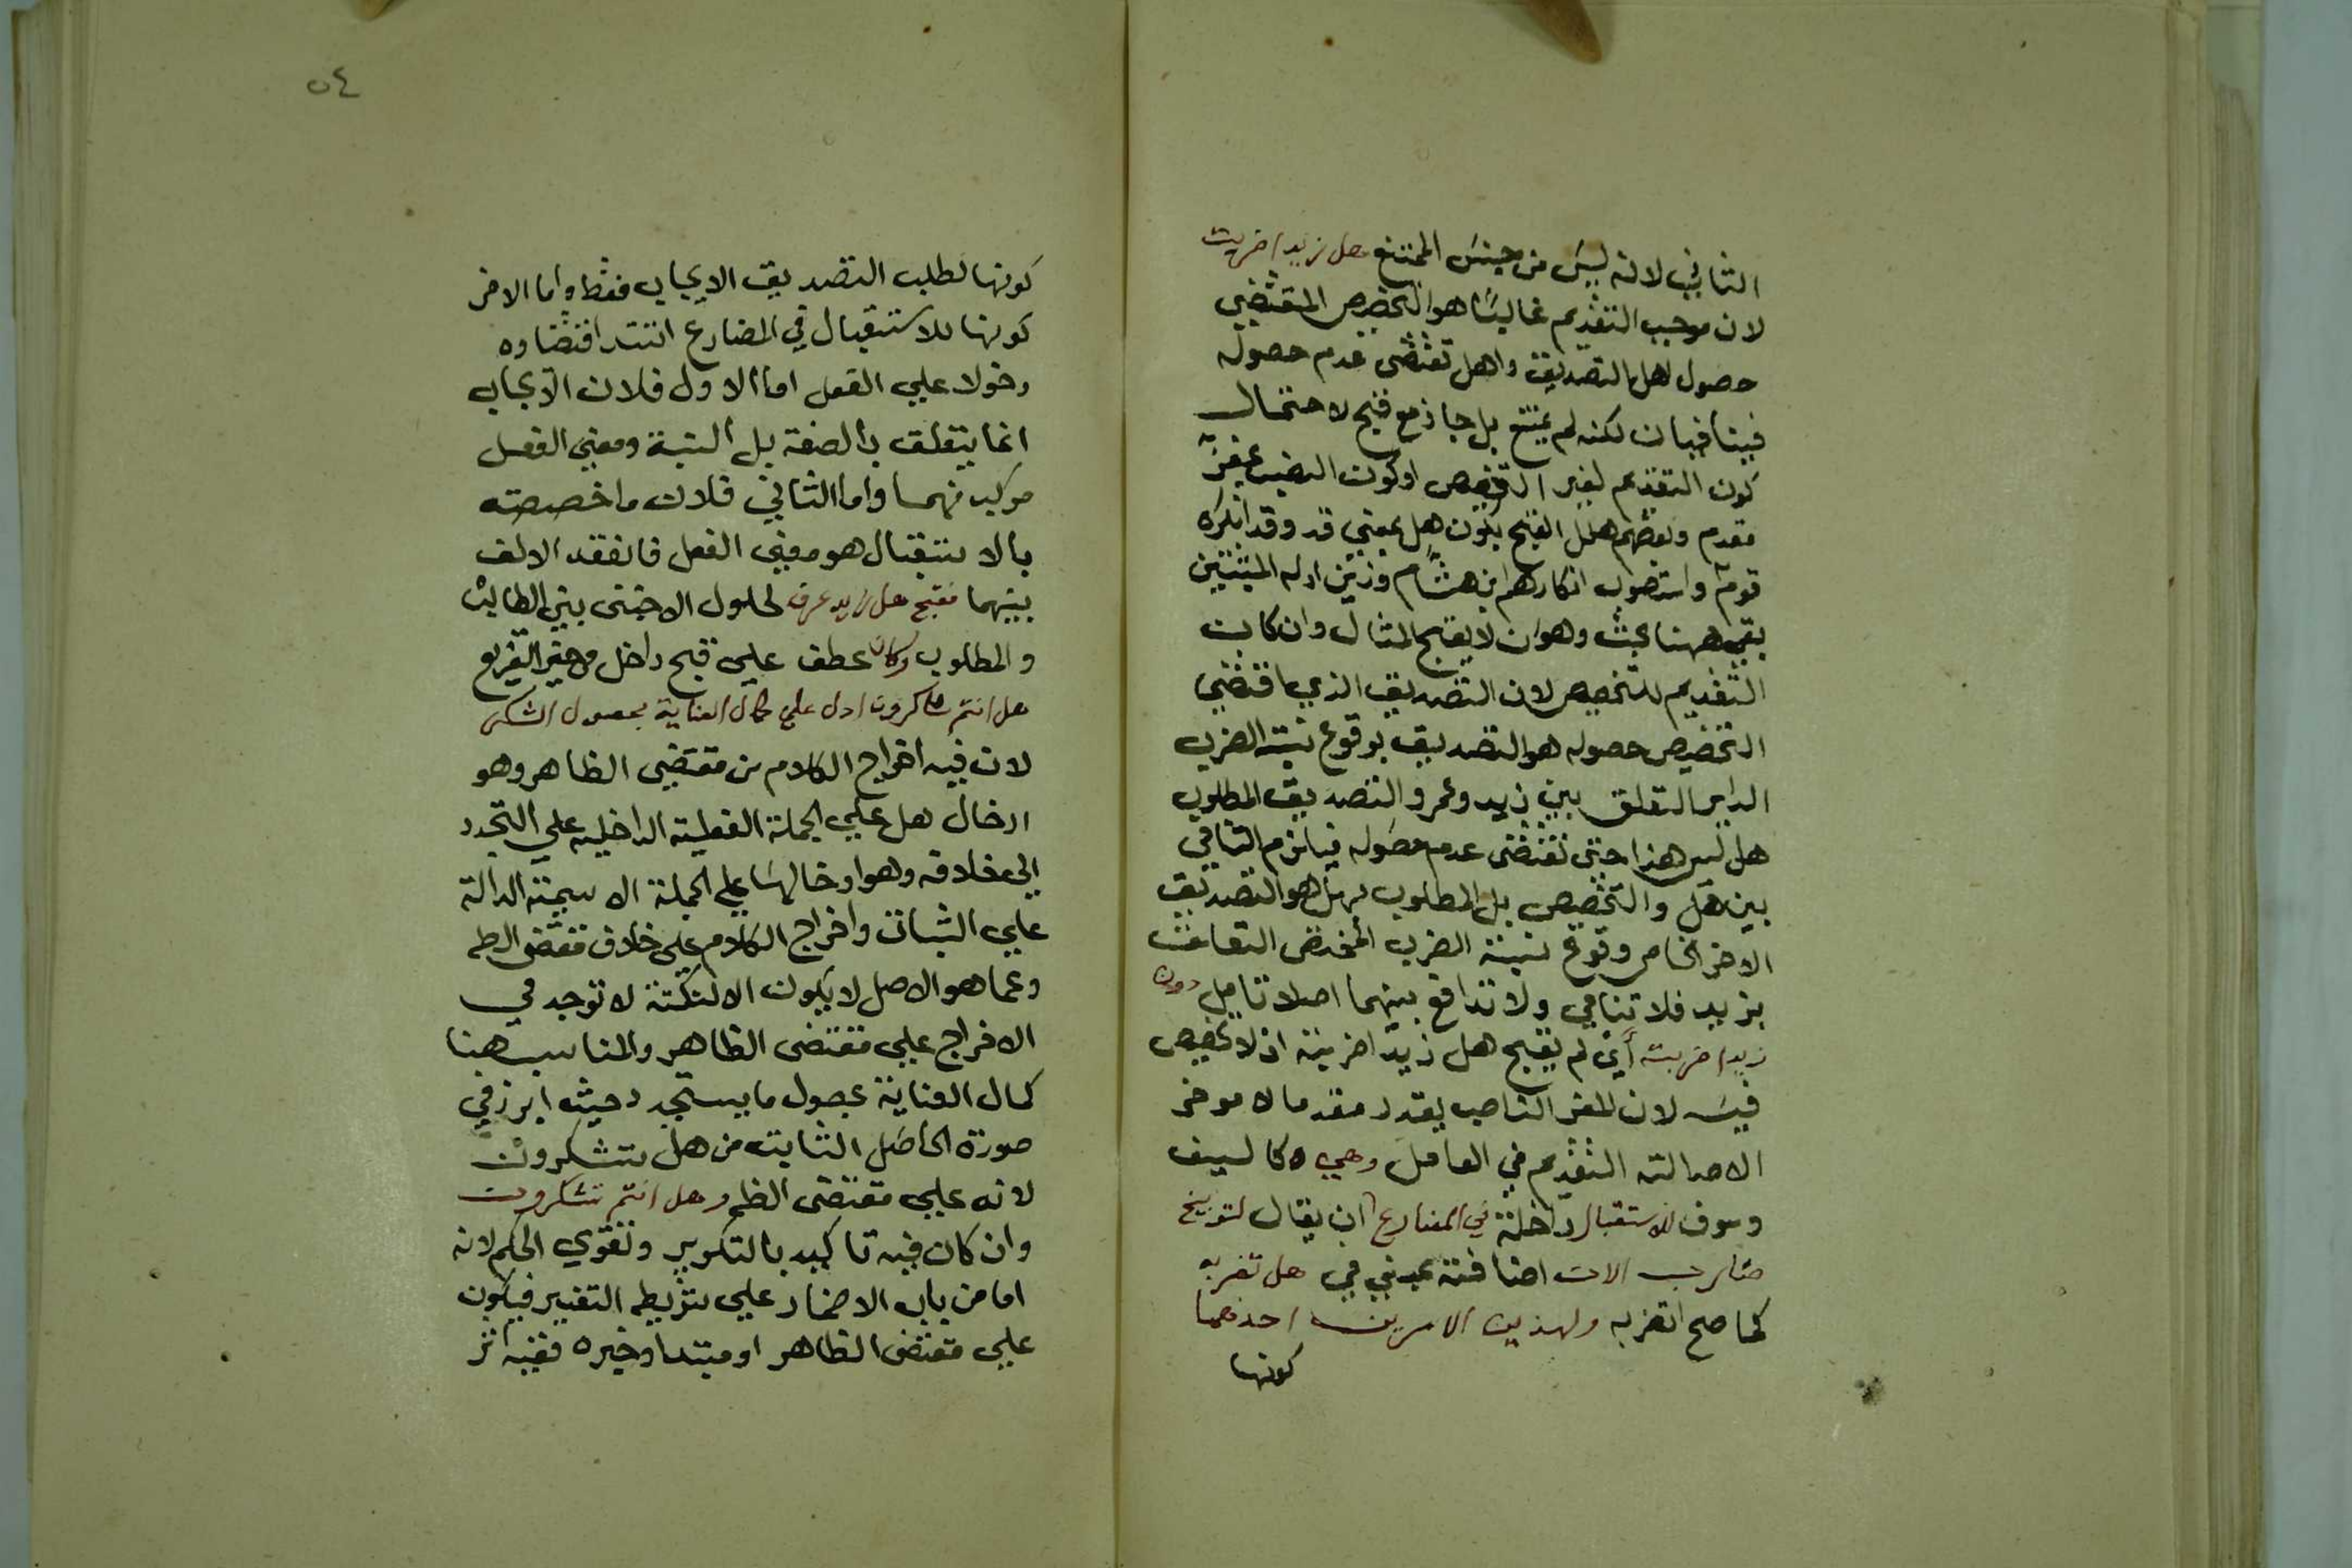 الثاني لانه ليس من جنس الممتنع هل زيدا ضربت
لان موجب التقديم غالبا هو التخصيص المقتضي
حصول اهل التصديق واهل تقتضى عدم حصوله
فيتنافيان لكنه لم يمتنع بل جاز مع قبح لاحتمال
كون التقديم لغير التخصيص او كون النصب بمضمر
مقدم وبعضهم علل القبح بكون هل بمعني قد وقد انكره
قوم واستصوب انكارهم ابن هشام وزيف ادله المثبتين
بقى ههنا بحث وهو ان لا يقبح المثال وان كانت
التقديم للتخصيص لان التصديق الذي اقتضي
التخصيص حصوله هو التصديق بوقوع نسبة الضرب
الداير التعلق بين زيد وعمرو التصديق المطلوب
هل ليس هذا حتى تقتضى عدم حصوله فيلزم التنافي
بين هل والتخصيص بل المطلوب بهل هو التصديق
الاخر الخاص وقوع نسبة الضرب المختص التعلق
بزيد فلا تنافي ولا تدافع بينهما اصلا تامل دون
زيدا ضربته أي لم يقبح هل زيدا ضربته اذ لا تخصيص
فيه لان المفسر الناصب يقدر مقدما لا موخر
الاصالته التقديم في العامل وهي كالسين
وسوف للاستقبال داخلة في المضارع ان يقال لتوبيخ
ضارب الان اضافته بمعني في هل تضربه
كما صح اتضربه ولهذين الامرين احدهما
كونها
٥٤
كونها لطلب التصديق الايجاب فقط واما الاخر
كونها للاستقبال في المضارع اشتد اقتضاوه
دخولا علي الفعل اما الاول فلان الايجاب
انما يتعلق بالصفة بل النسبة ومعني الفعل
مركب منهما واما الثاني فلان ما خصصته
بالاستقبال هو معني الفعل فانعقد الالف
بينهما فقبح هل زيد عرف لحلول الاجنبى بين الطالب
والمطلوب وكان عطف علي قبح داخل في حيز التفريع
هل انتم شاكرون ادل علي كمال العناية بحصول الشكر
لان فيه اخراج الكلام من مقتضي الظاهر وهو
ادخال هل علي الجملة الفعلية الداخلية علي التجدد
الى خلافه وهو ادخالها علي الجملة الاسمية الدالة
علي الثبات واخراج الكلام علي خلاف مقتضى الظ
وعما هو الاصل لا يكون الا لنكتة لا توجد في
الاخراج علي مقتضى الظاهر والمناسب هنا
كمال العناية بحصول ما يستجدد حيث ابرز في
صورة الحاصل الثابت من هل تشكرون
لانه علي مقتضى الظ وهل انتم تشكرون
وان كان فيه تاكيد بالتكرير وتقوي الحكم لانه
اما من باب الاضمار علي شريطة التفسير فيكون
علي مقتضى الظاهر او مبتدا وخبره ففيه اثر